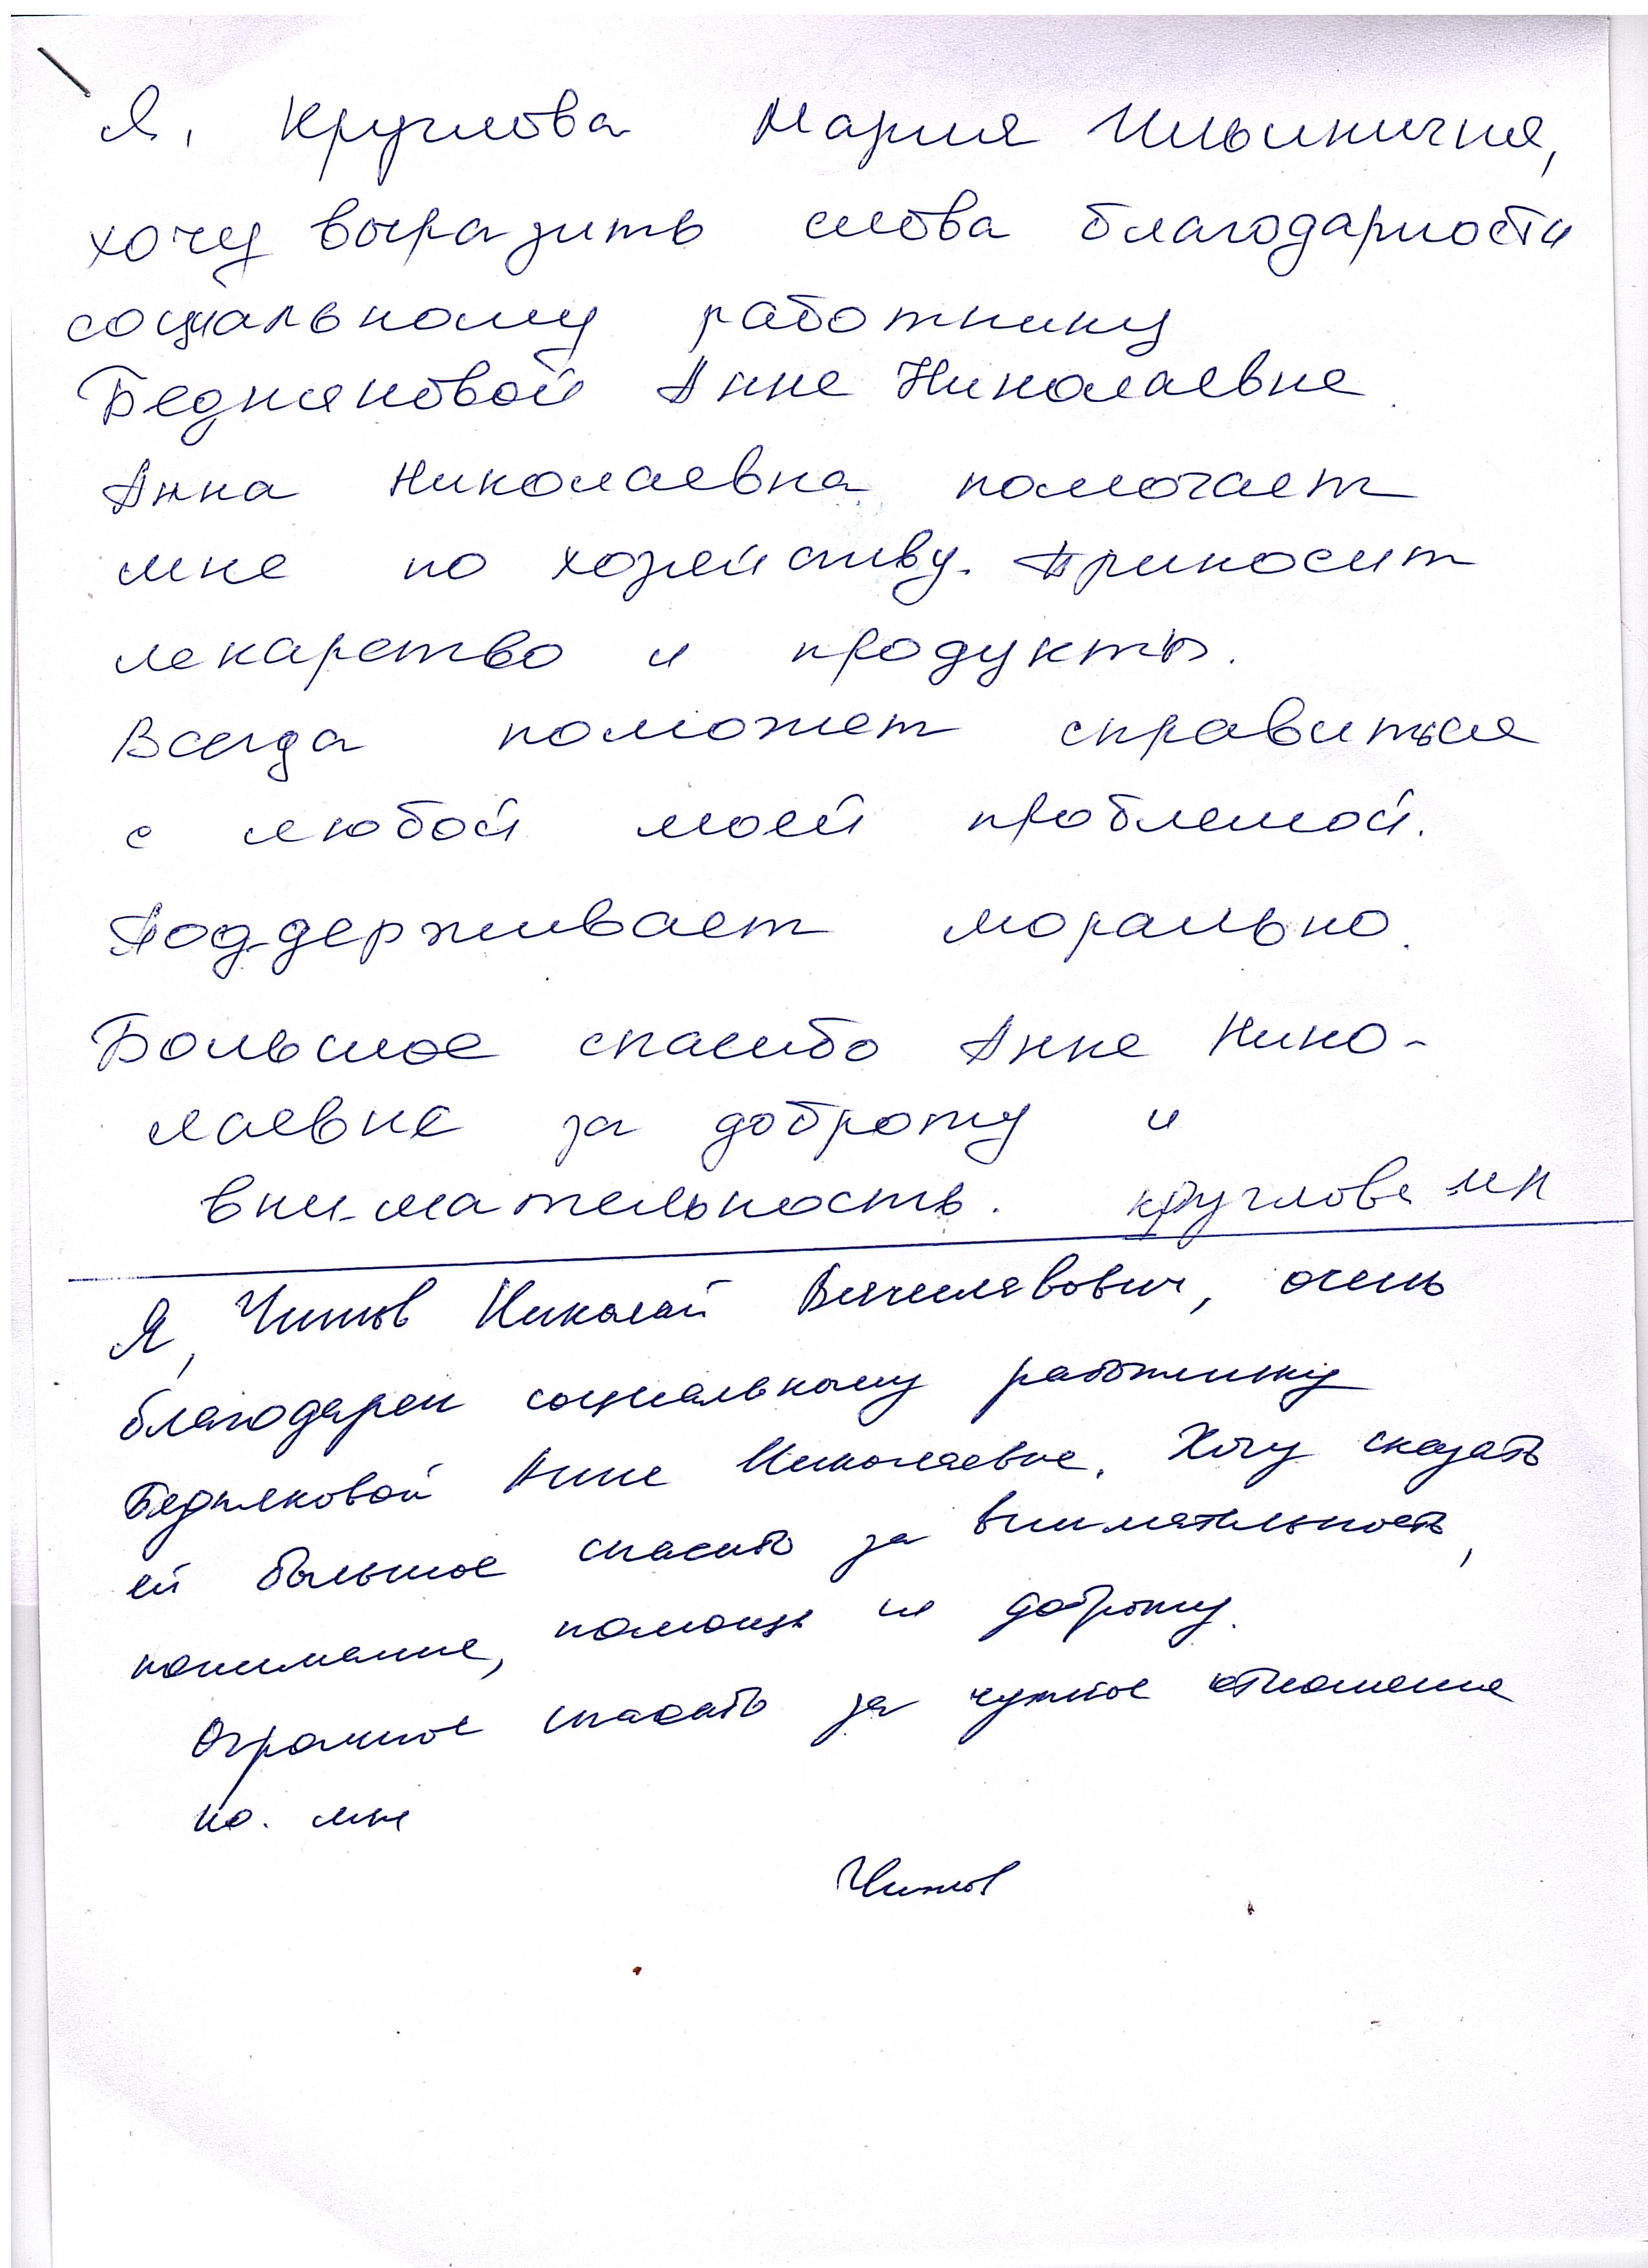 Я, Круглова Мария Ильинична,
хочу выразить слова благодарности
социальному работнику
Бедняковой Анне Николаевне.
Анна Николаевна помогает
мне по хозяйству. Приносит
лекарство и продукты.
Всегда поможет справиться
с любой моей проблемой.
Поддерживает морально.
Большое спасибо Анне Нико-
лаевне за доброту и
внимательность. Круглова МИ
Я, Читов Николай Вячеславович, очень
благодарен социальному работнику
Бедняковой Анне Николаевне. Хочу сказать
ей большое спасибо за внимательность,
понимание, помощь и доброту.
Огромное спасибо за чуткое отношение
ко мне
Читов